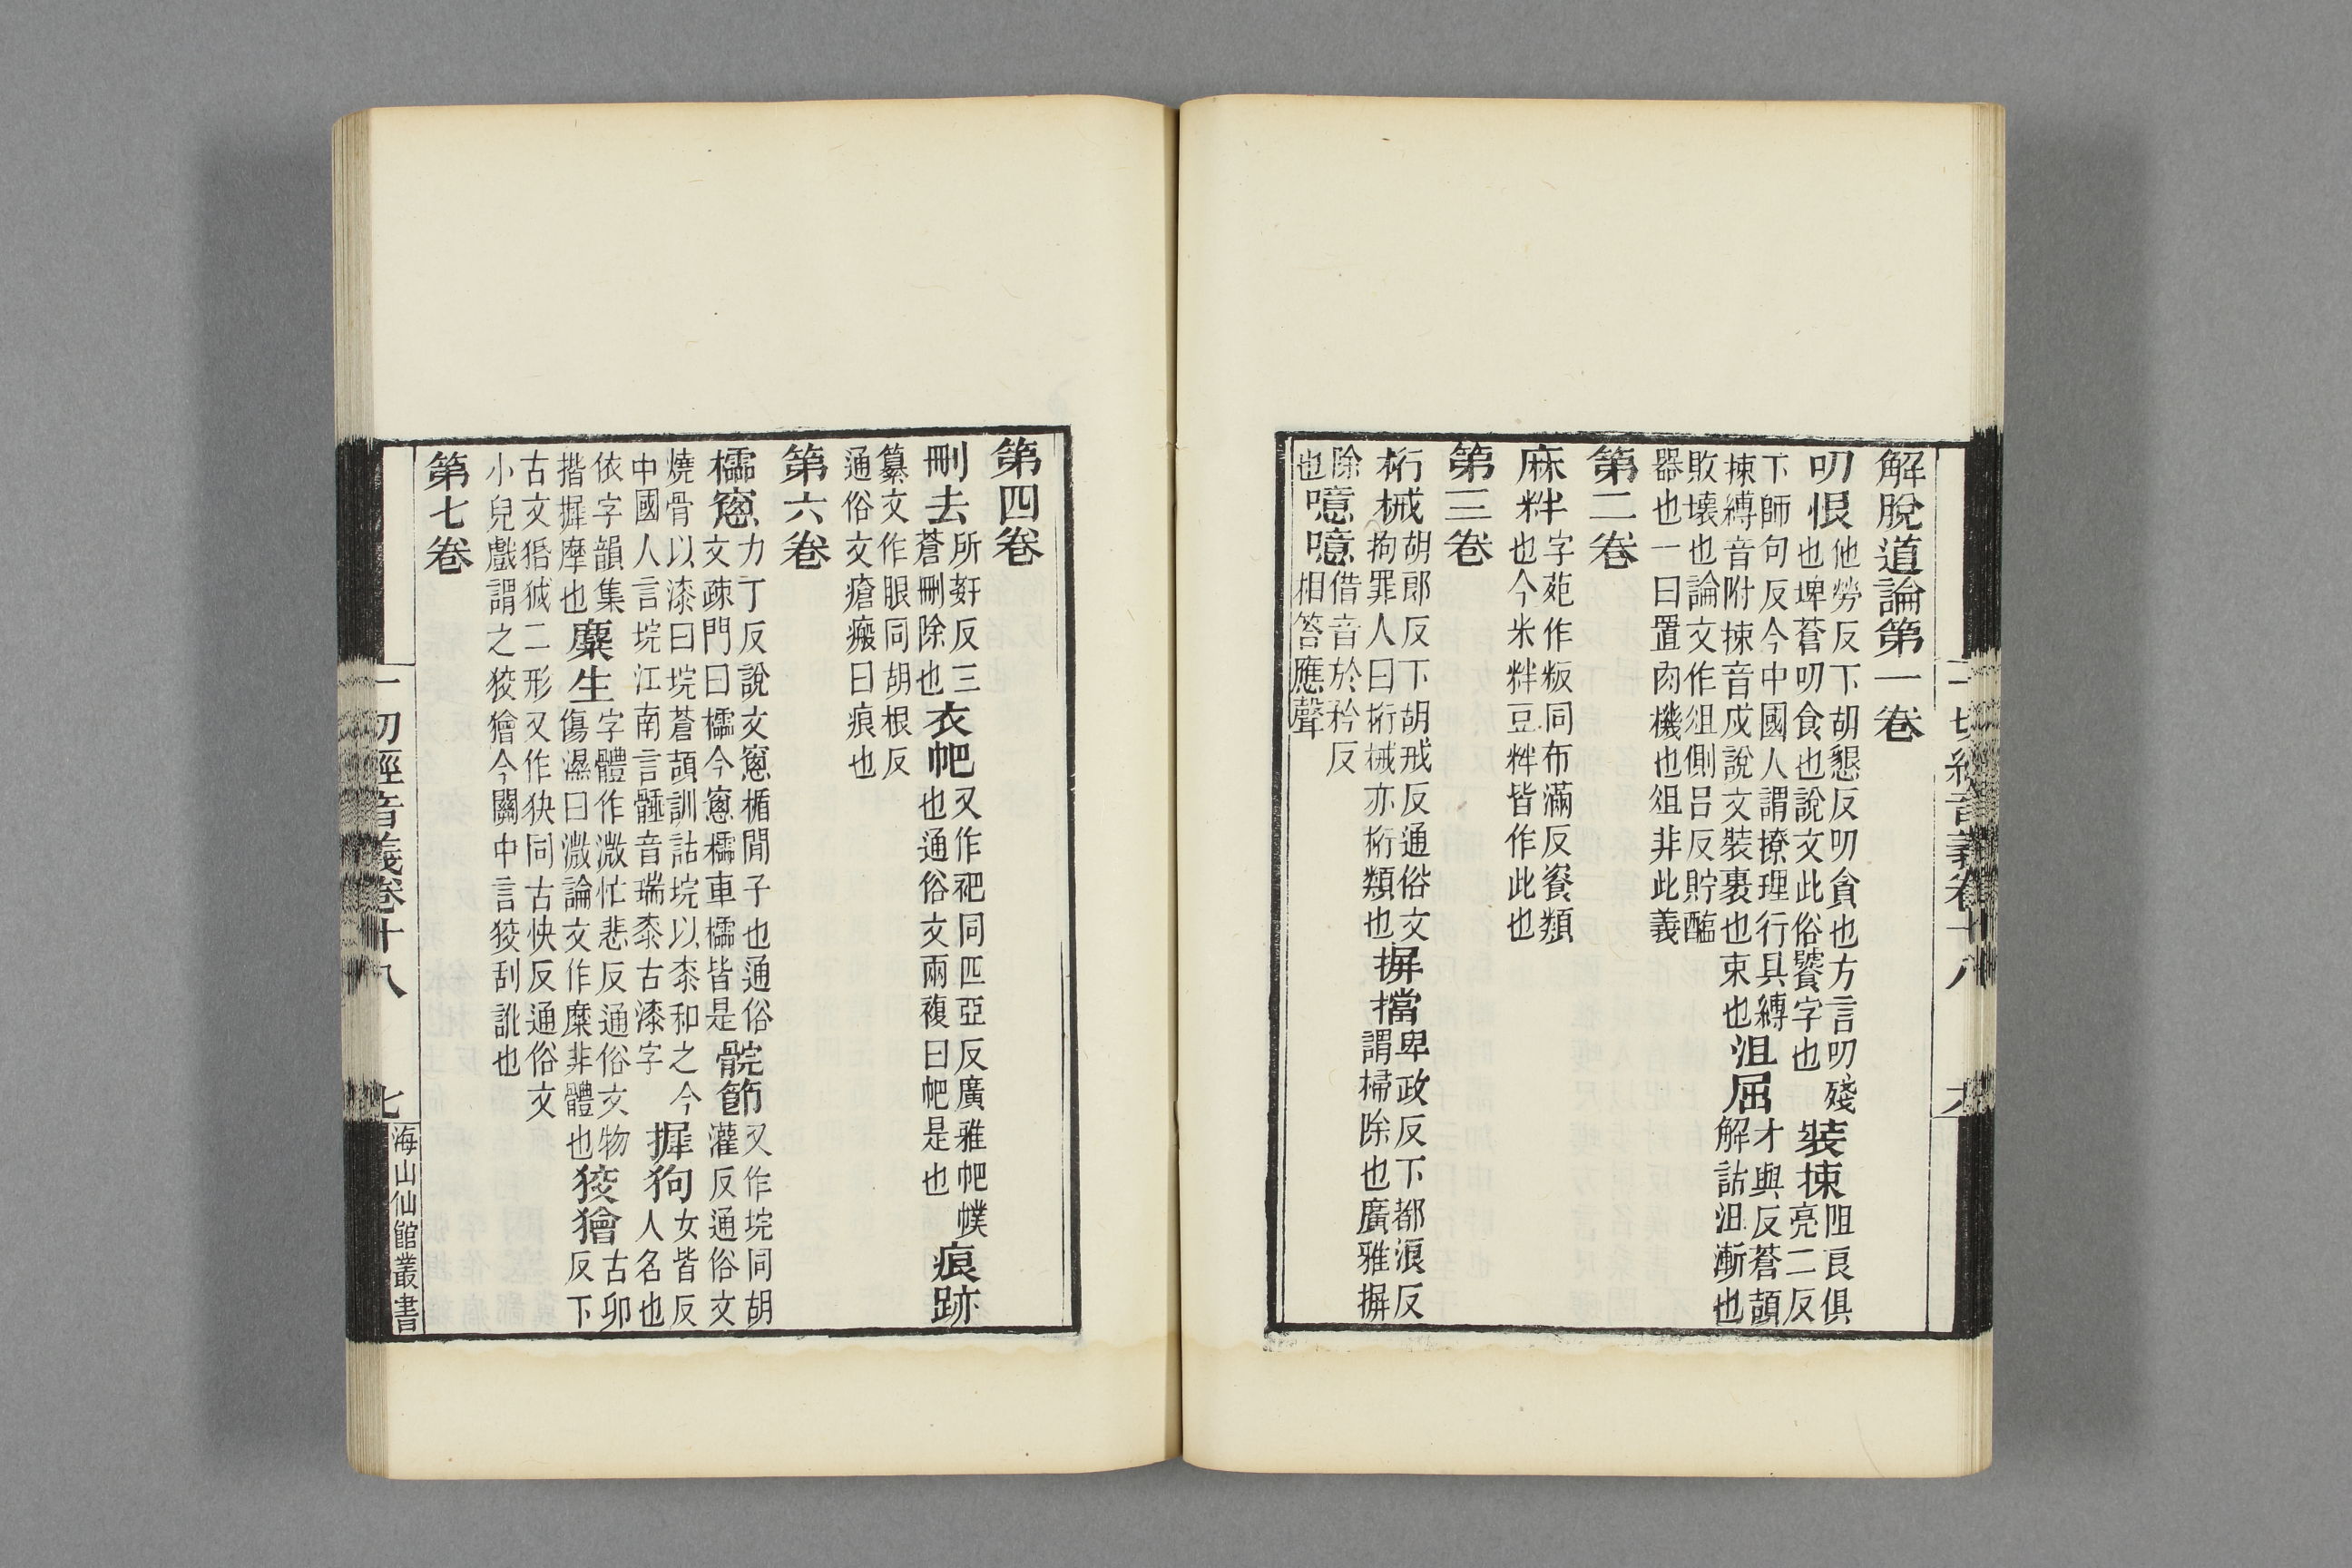 解脫道論第一卷
叨恨他勞反下胡懇反叨貪也方言叨殘也埤蒼叨食也說文此俗饕字也裝揀阻良俱亮二反
下師句反今中國人謂撩理行具縛揀縛音附揀音戍說文裝裹也束也沮屈才與反蒼頡解詁沮漸也
敗壞也論文作俎側呂反貯醢器也一曰置肉機也俎非此義
第二卷
麻粋字苑作粄同布滿反餈類也今米粋豆粋皆作此也
第三卷
桁械胡郎反下胡戒反通俗文拘罪人曰桁械亦桁類也摒擋卑政反下都浪反謂掃除也廣雅摒
除也噫噫借音於矜反相答應聲
一切經音義卷十八
六
第四卷
刪去所姧反三蒼刪除也衣帊又作祀同匹亞反廣雅帊幞也通俗文兩複曰帊是也痕跡
纂文作眼同胡根反通俗文瘡瘢曰痕也
第六卷
櫺窻力丁反說文窻楯閒子也通俗文疎門曰櫺今窻櫺車櫺皆是髖節又作垸同胡灌反通俗文
燒骨以漆曰垸蒼頡訓詁垸以桼和之今中國人言垸江南言䯝音瑞桼古漆字摨狗女皆反人名也
依字韻集揩摨摩也麋生字體作溦忙悲反通俗文物傷濕曰溦論文作糜非體也狡獪古卯反下
古文狤狘二形又作狭同古快反通俗文小兒戲謂之狡獪今關中言狡刮訿也
第七卷
一切經音義卷十八
七
海山仙館叢書